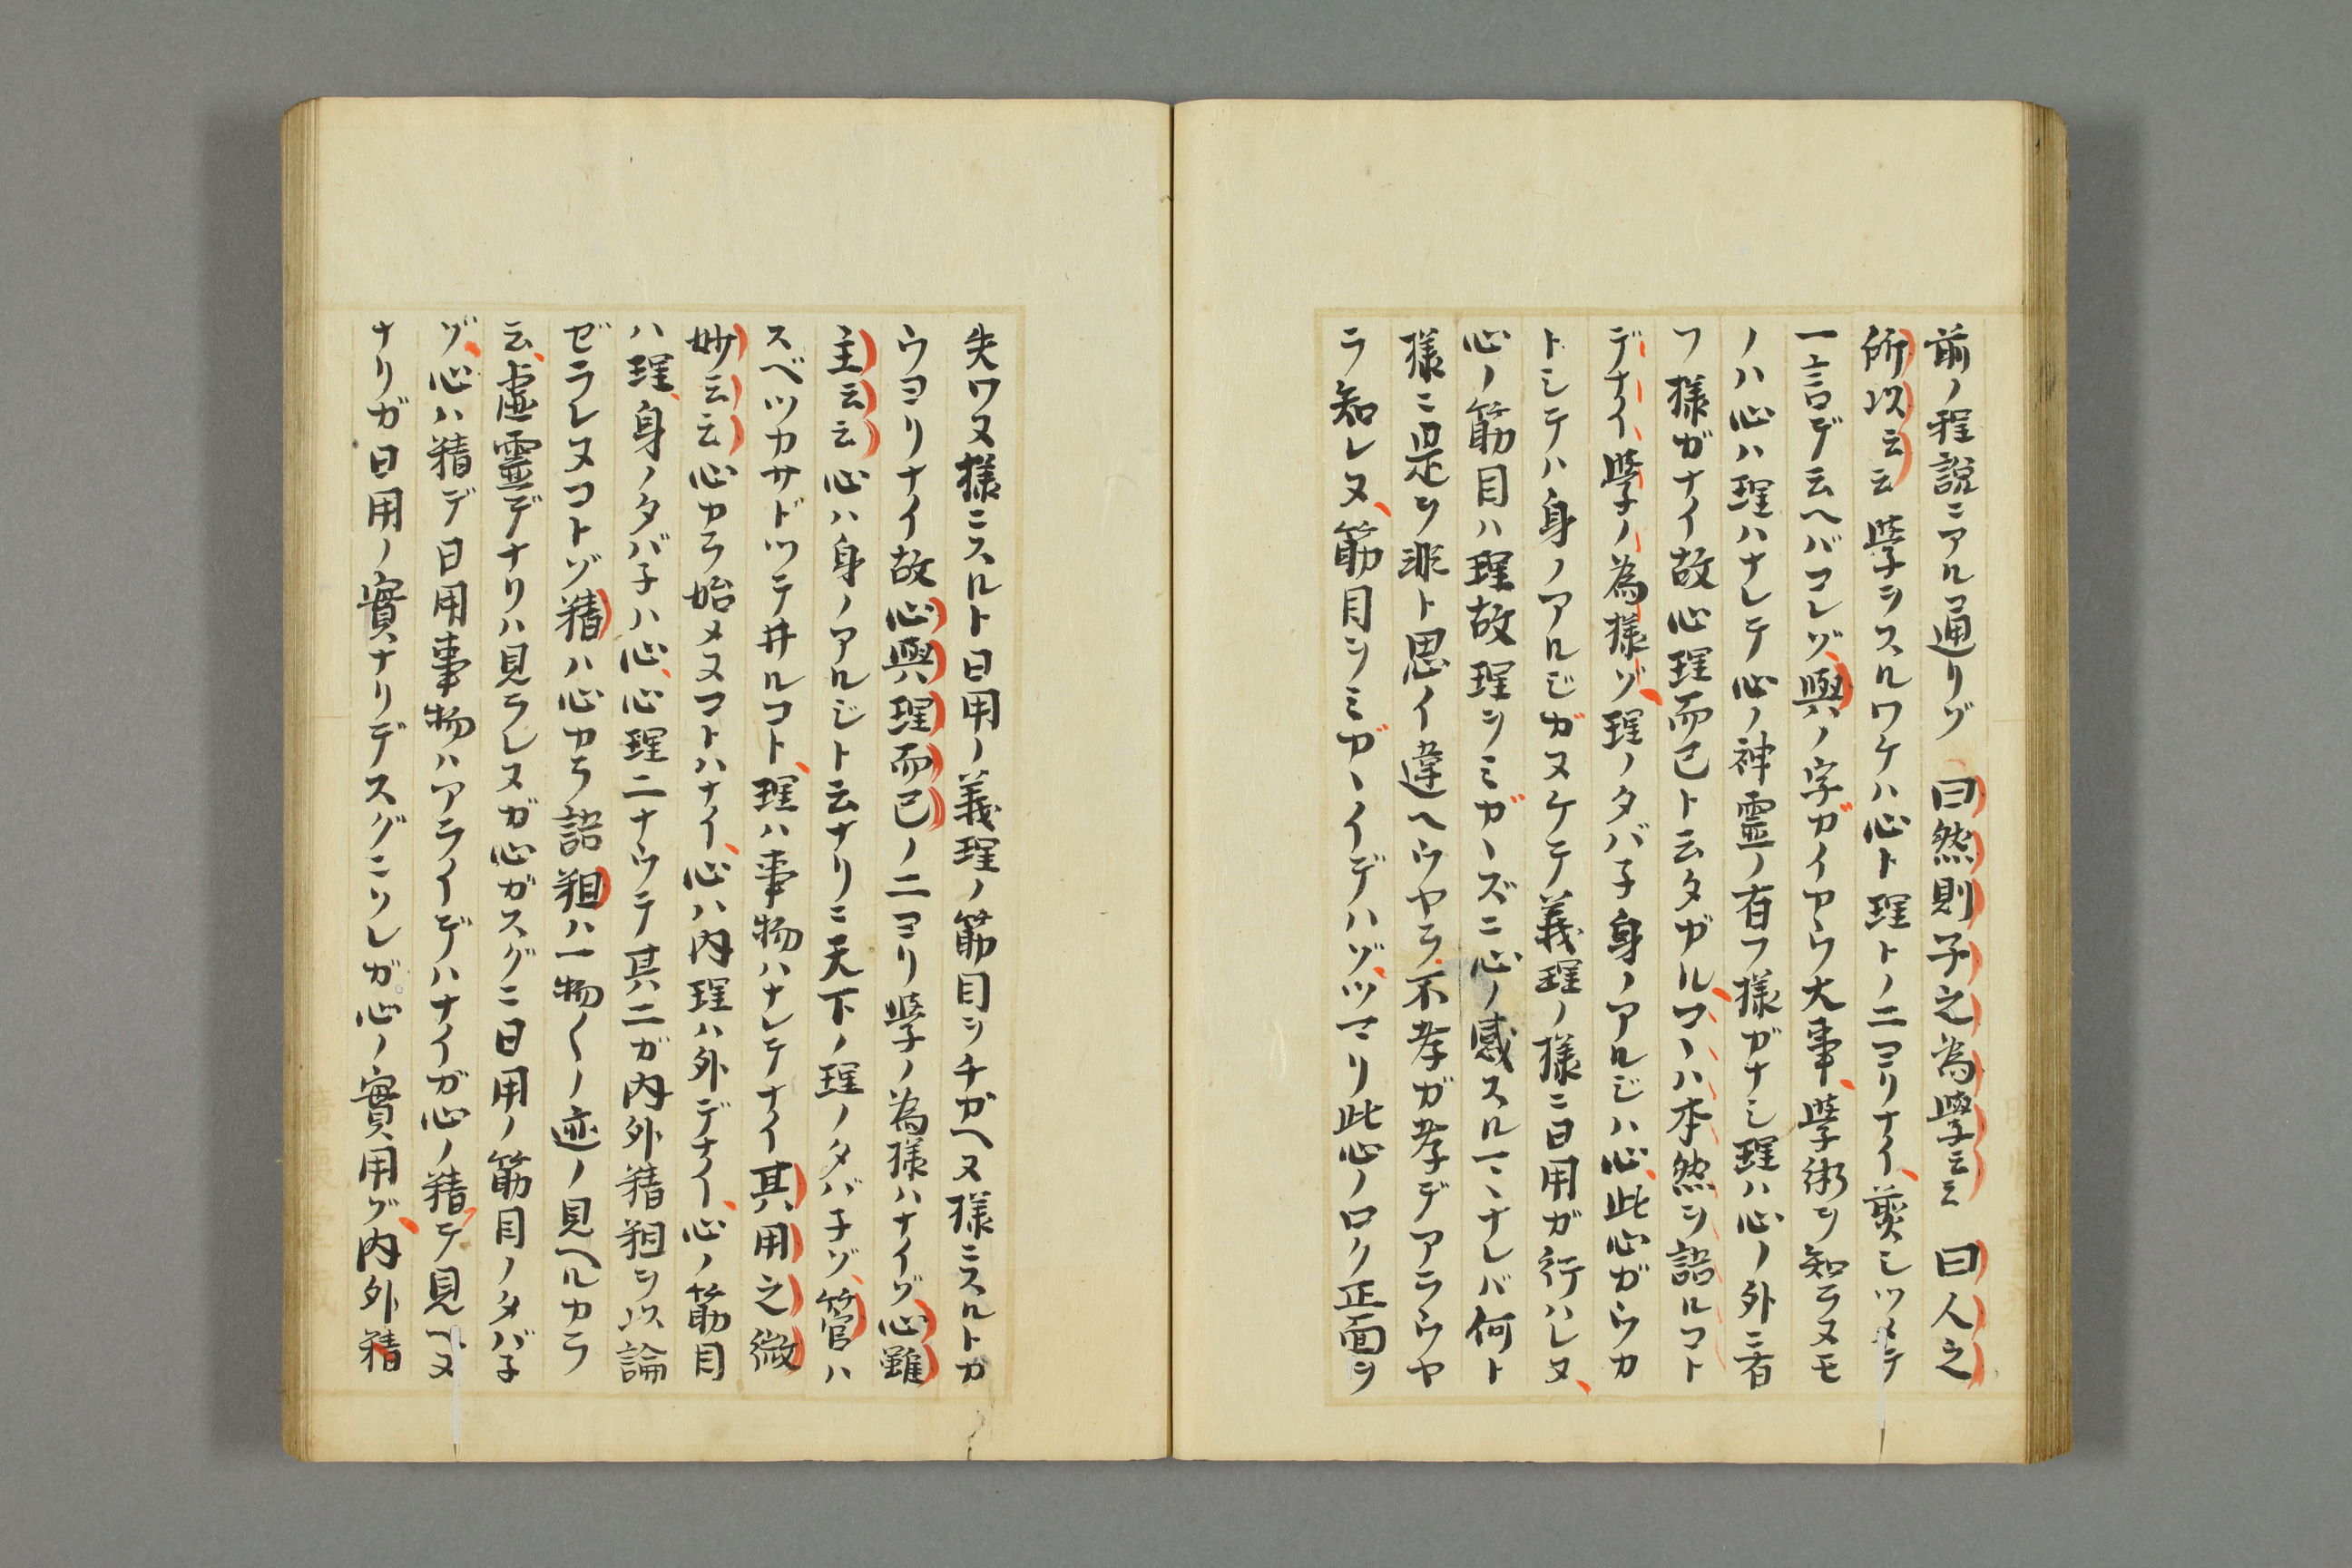 前ノ程説ニアル通リゾ　曰然則子之為學云云　曰人之
所以云云　學ヲスルワケハ心ト理トノ二ヨリナイ、煎シツメテ
一言デ云ヘバコレゾ、與ノ字ガイヤウ大事、學術ヲ知ラヌモ
ノハ心ハ理ハナレテ心ノ神霊ノ有フ様ガナシ理ハ心ノ外ニ有
フ様ガナイ故心理而已ト云タガルマヽハ本然ヲ語ルコト
デナイ、學ノ為様ゾ、理ノタバ子身ノアルジハ心、此心ガウカ
トシテハ身ノアルジガヌケテ義理ノ様ニ日用ガ行ハレヌ、
心ノ筋目ハ理故理ヲミガヽズニ心ノ感スルマヽナレバ何ト
様ニ是ヲ非ト思イ違ヘウヤラ不孝ガ孝デアラウヤ
ラ知レヌ、筋目ヲミガヽイデハゾ、ツマリ此心ノロク正面ヲ
失ワヌ様ニスルト日用ノ義理ノ筋目ヲチガヘヌ様ニスルトガ
ウヨリナイ故心與理而已ノ二ヨリ學ノ為様ハナイゾ心雖
主云云　心ハ身ノアルジト云ナリニ天下ノ理ノタバ子ゾ、管ハ
スベツカサドツテ井ルコト、理ハ事物ハナレテナイ其用之微
妙云云　心カラ始メヌコトハナイ、心ハ内理ハ外デナイ、心ノ筋目
ハ理、身ノタバ子ハ心、心理二ナウテ其二ガ内外精粗ヲ以論
ゼラレヌコトゾ精ハ心カラ語粗ハ一物〱ノ迹ノ見ヘルカラ
云、虚霊デナリハ見ラレヌガ心ガスグニ日用ノ筋目ノタバ子
ゾ、心ハ精デ日用事物ハアライデハナイガ心ノ精テ見ヘヌ
ナリガ日用ノ實ナリデスグニソレガ心ノ實用ゾ、内外精